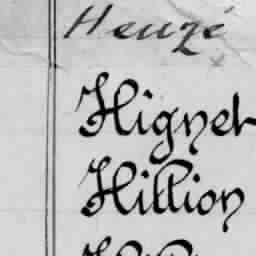 Heuzé
Hignet
Hillion